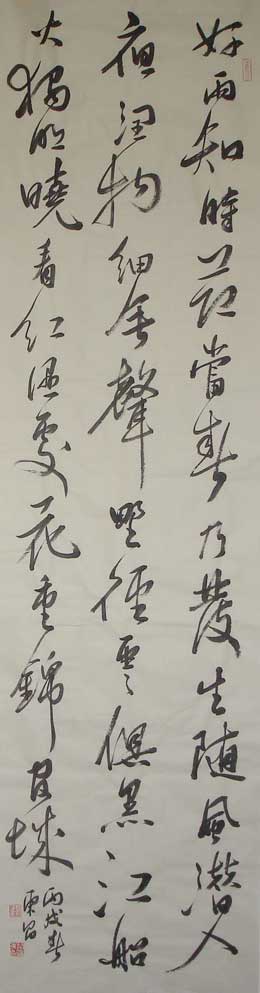 好雨知時節當春乃發生随風潜入
夜润物细無聲野径雲俱黑江船
火獨明曉看红湿處花重錦官城
丙戌春